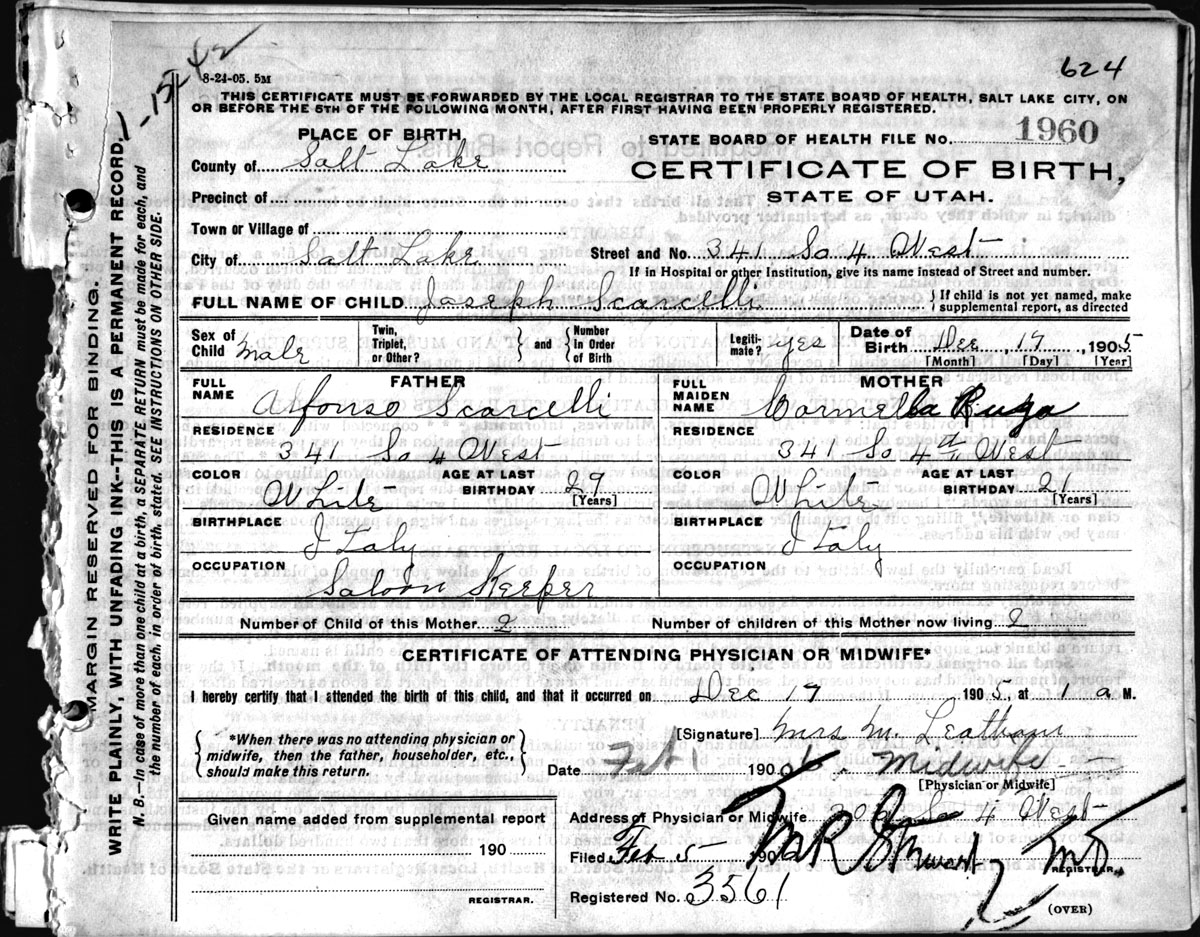 624
1-15-42
8-24-05. 5M
THIS CERTIFICATE MUST BE FORWARDED BY THE LOCAL REGISTRAR TO THE STATE BOARD OF HEALTH, SALT LAKE CITY, ON
OR BEFORE THE 5TH OF THE FOLLOWING MONTH, AFTER FIRST HAVING BEEN PROPERLY REGISTERED.
PLACE OF BIRTH,
STATE BOARD OF HEALTH FILE NO. 1960
County of Salt Lake
CERTIFICATE OF BIRTH,
STATE OF UTAH.
Precinct of
Town or Village of
City of Salt Lake Street and No 341 So 4 West
If in Hospital or other Institution, give its name instead of Street and number.
FULL NAME OF CHILD Joseph Scarcelli { If child is not yet named, make
supplemental report, as directed
Sex of Child Male Twin, Triplet, or Other? } and { Number In Order of Birth Legiti- mate? yes Date of Birth Dec 17 1905
[Month] [Day] [Year]
FATHER
FULL NAME Alfonso Scarcelli
RESIDENCE
341 So 4 West
COLOR White AGE AT LAST BIRTHDAY 29 [Years]
BIRTHPLACE
Italy
OCCUPATION
Saloon Keeper
MOTHER
FULL MAIDEN NAME Carmella
RESIDENCE
341 So 4th West
COLOR White AGE AT LAST BIRTHDAY 21 [Years]
BIRTHPLACE
Italy
OCCUPATION
Number of Child of this Mother 2 Number of children of this Mother now living 2
CERTIFICATE OF ATTENDING PHYSICIAN OR MIDWIFE*
I hereby certify that I attended the birth of this child, and that it occurred on Dec 17 1905, at 1 a M.
{ *When there was no attending physician or
midwife, then the father, householder, etc.,
should make this return. }
[Signature] Mrs M. Leatham
Date Feb 1 190 Midwife
[Physician or Midwife]
Address of Physician or Midwife So 4 West
Filed Feb 5 190 Stewart MD
REGISTRAR.
Registered No. 3561
(OVER)
Given name added from supplemental report
190
REGISTRAR.
MARGIN RESERVED FOR BINDING.
WRITE PLAINLY, WITH UNFADING INK--THIS IS A PERMANENT RECORD.
N. B.--In case of more than one child at a birth, a SEPARATE RETURN must be made for each, and
the number of each, in order of birth, stated. SEE INSTRUCTIONS ON OTHER SIDE.